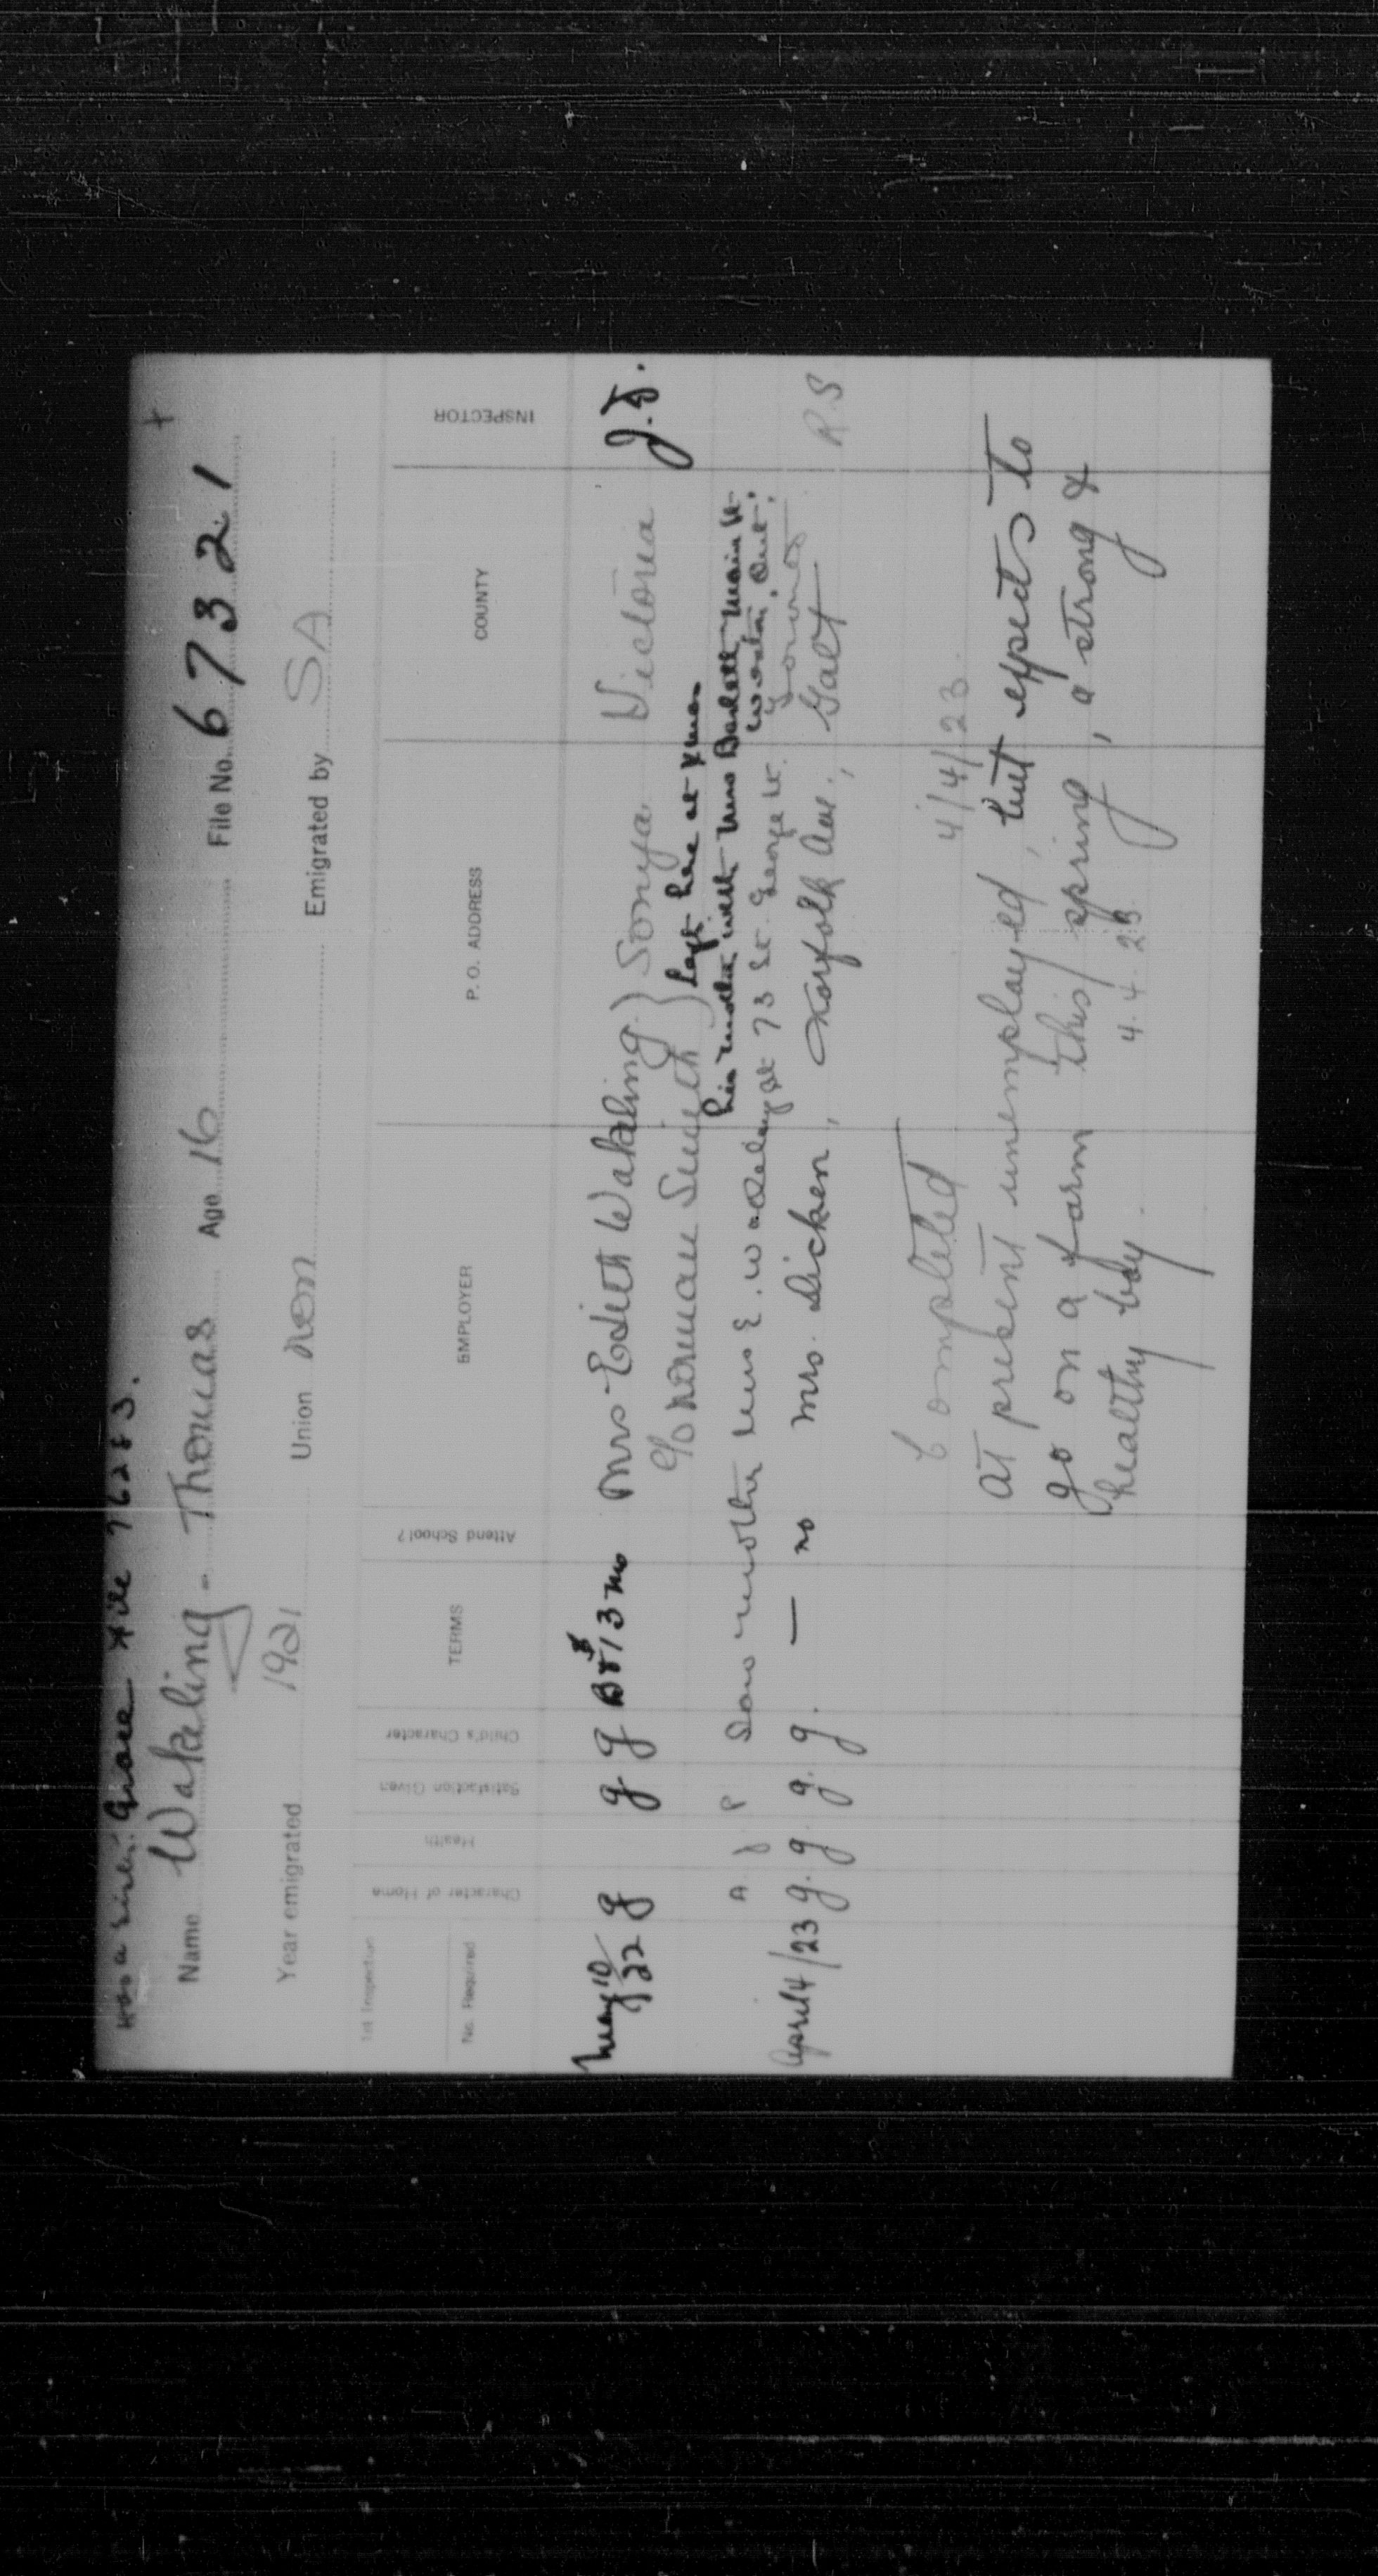 Has a sister Grace File 76283.
Name Wakeling - Thomas Age 16 File No. 67321 +
Year emigrated 1921 Union non Emigrated by SA
1st Inspection
No. Required Character of Home Health Satisfaction Given Child's Character TERMS Attend School? EMPLOYER P. O. ADDRESS COUNTY INSPECTOR
May 10/22 g g g $13 mo Mrs Edith Wakeling } Sonya Victoria J.J.
c/o Norman Smith } Left here at Xmas
his mother with Mrs Main St
Saw mother Mrs E. at 73 St. George St. Ont.
April 4/23 g. g. g. g. — no Mrs. Dicken, Norfolk Ave., Galt R.S
Completed 4/4/23.
At present unemployed, but expects to
go on a farm this spring, a strong &
healthy boy. 4.4.23